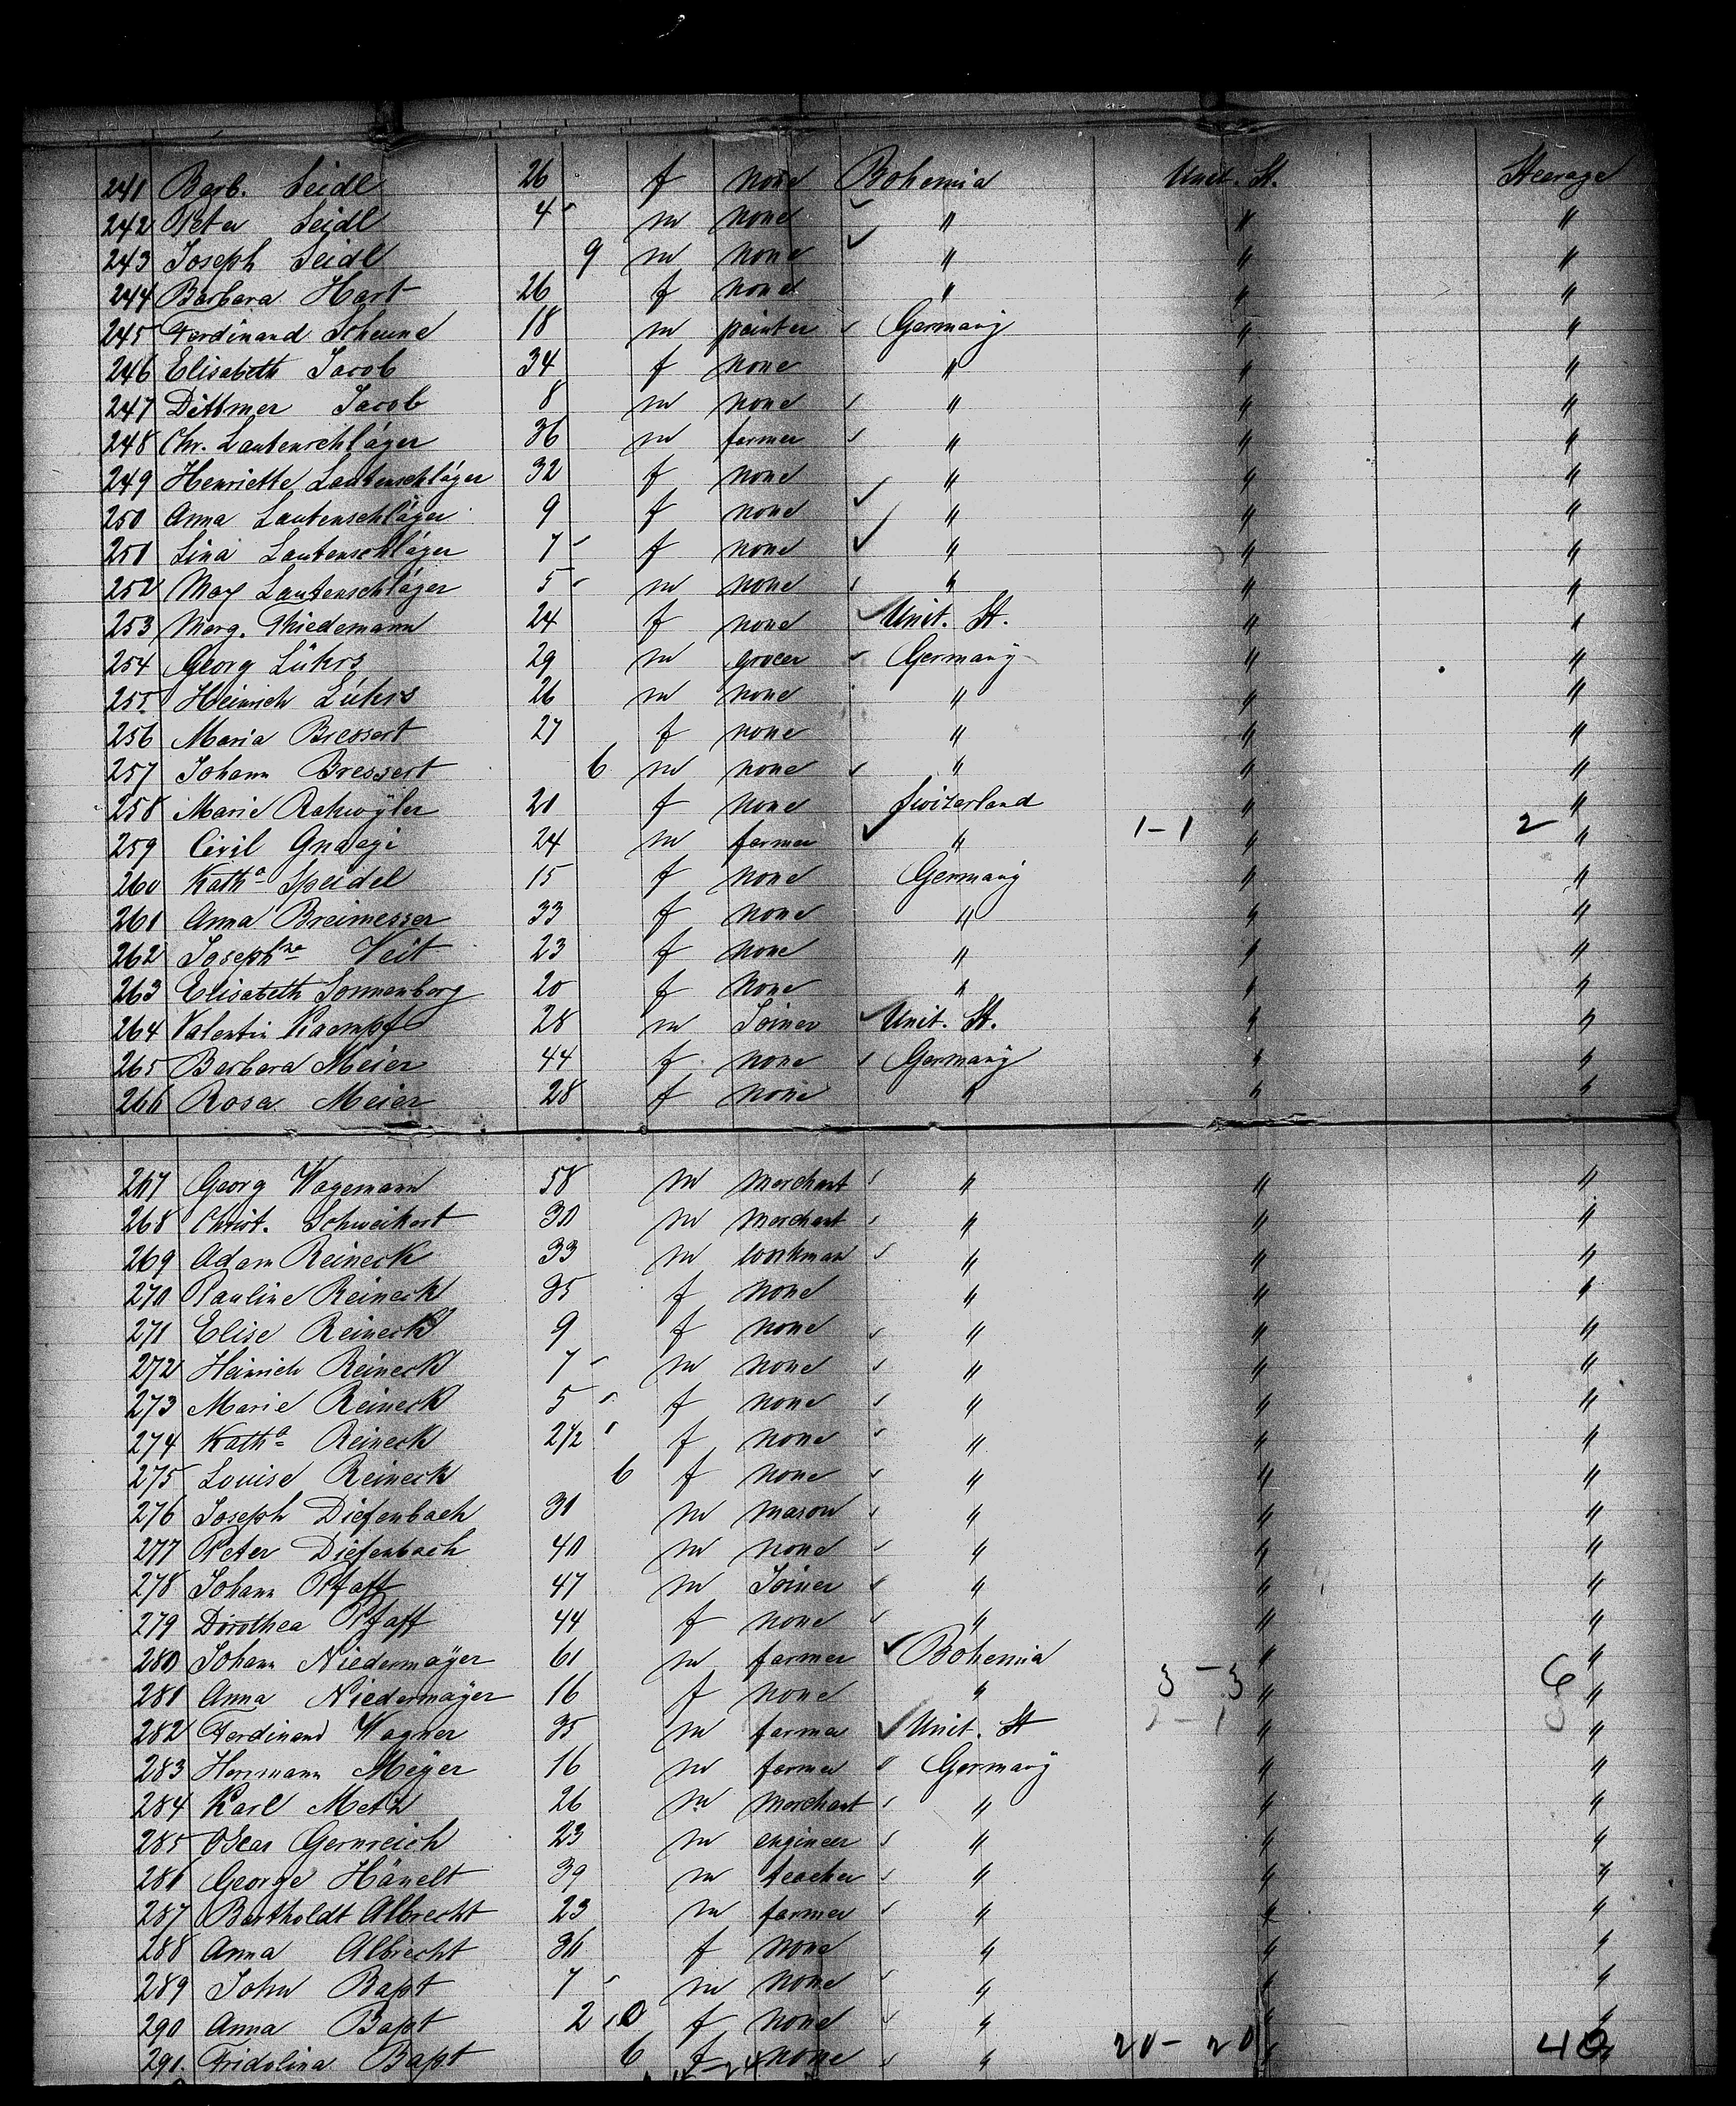 241 Barb. Seidl 26 f none Bohemia Unit. St. Steerage
242 Peter Seidl 4 m none " " "
243 Joseph Seidl 9 m none " " "
244 Barbara Hart 26 f none " " "
245 Ferdinand Scheune 18 m painter Germany " "
246 Elisabeth Jacob 34 f none " " "
247 Dittmer Jacob 8 m none " " "
248 Chr. Lautenschläger 36 m farmer " " "
249 Henriette Lautenschläger 32 f none " " "
250 Anna Lautenschläger 9 f none " " "
251 Lina Lautenschläger 7 f none " " "
252 Max Lautenschläger 5 m none " " "
253 Marg. Thiedemann 24 f none Unit. St. " "
254 Georg Lührs 29 m grocer Germany " "
255 Heinrich Lührs 26 m none " " "
256 Maria Bressert 27 f none " " "
257 Johann Bressert 6 m none " " "
258 Marie Rahwyler 21 f none Switzerland " "
259 Ciril Gnaegi 24 m farmer " 1-1 " 2 "
260 Katha Speidel 15 f none Germany " "
261 Anna Breimesser 33 f none " " "
262 Josephne Veit 23 f none " " "
263 Elisabeth Sonnenberg 20 f none " " "
264 Valentin Kaempf 28 m Joiner Unit. St. " "
265 Barbara Meier 44 f none Germany " "
266 Rosa Meier 28 f none " " "
267 Georg Wagemann 58 m merchant " " "
268 Christ. Schweikart 30 m merchant " " "
269 Adam Reineck 33 m workman " " "
270 Pauline Reineck 35 f none " " "
271 Elise Reineck 9 f none " " "
272 Heinrich Reineck 7 m none " " "
273 Marie Reineck 5 f none " " "
274 Katha Reineck 2 1/2 f none " " "
275 Louise Reineck 6 f none " " "
276 Joseph Diefenbach 31 m mason " " "
277 Peter Diefenbach 40 m none " " "
278 Johann Pfaff 47 m Joiner " " "
279 Dorothea Pfaff 44 f none " " "
280 Johann Niedermayer 61 m farmer Bohemia " "
281 Anna Niedermayer 16 f none " 3-3 " 6 "
282 Ferdinand Wagner 35 m farmer Unit. St " "
283 Hermann Meyer 16 m farmer Germany " "
284 Karl Metz 26 m merchant " " "
285 Oscar Gernreich 23 m engineer " " "
286 George Hänelt 39 m teacher " " "
287 Bartholdt Albrecht 23 m farmer " " "
288 Anna Albrecht 36 f none " " "
289 John Bapt 7 m none " " "
290 Anna Bapt 2 10 f none " " "
291 Fridolina Bapt 6 f none " 20-20 " 40 "